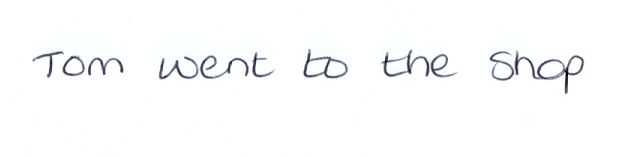 Tom went to the shop